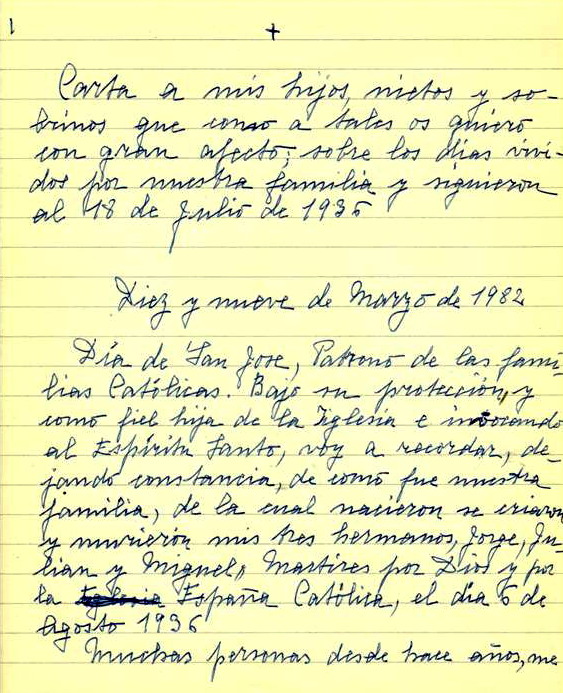 1
+
Carta a mis hijos, nietos y so-
brinos que como a tales os quiero
con gran afecto; sobre los dias vivi-
dos por nuestra familia y siguieron
al 18 de Julio de 1936
Diez y nueve de Marzo de 1982
Día de San Jose, Patrono de las fami-
lias Católicas. Bajo su protección, y
como fiel hija de la Iglesia e invocando
al Espíritu Santo, voy a recordar, de-
jando constancia, de como fue nuestra
familia, de la cual nacieron se criaron
y murieron mis tres hermanos, Jorge, Ju-
lian y Miguel, Martires por Dios y por
la Iglesia España Católica, el día 6 de
Agosto 1936
Muchas personas desde hace años, me